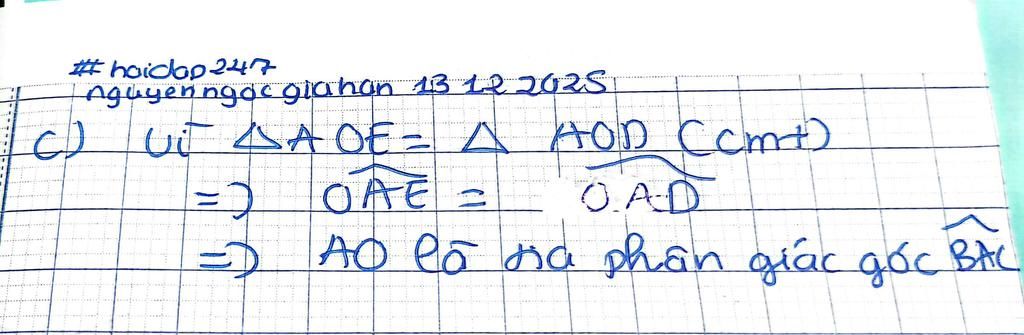 # hoidap247
nguyenngocgiahan 13 12 2025
c) Vì △AOE = △ AOD (cmt)
=> OAE = OAD
=> AO là tia phân giác góc BAC